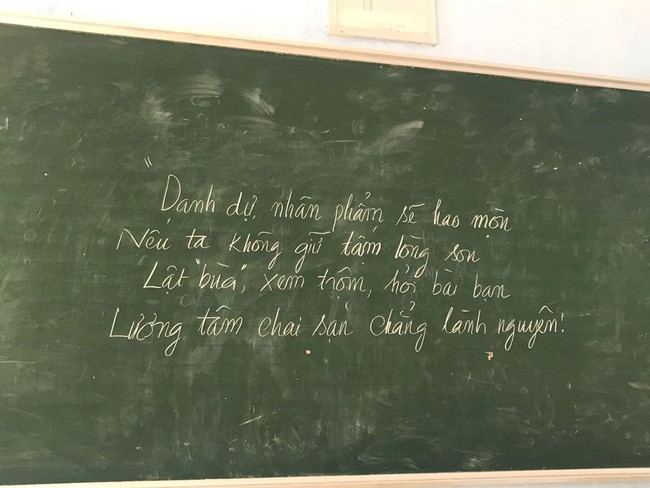 "
Danh dự, nhân phẩm sẽ hao mòn
Nếu ta không giữ tấm lòng son
Lật "bùa", xem trộm, hỏi bài bạn
Lương tâm chai sạn chẳng lành nguyên!